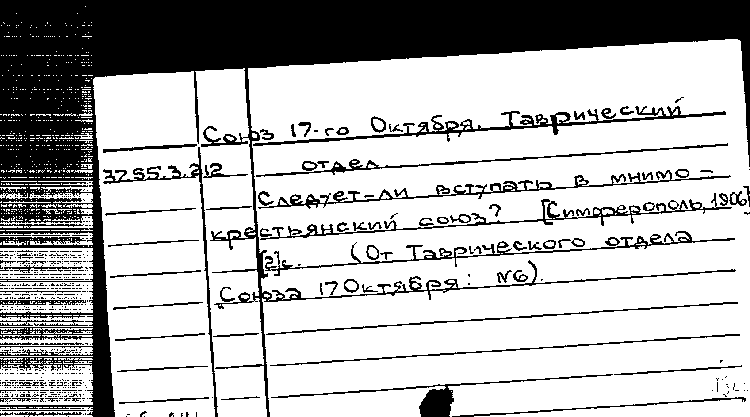 Союз 17-го Октября. Таврический
37.55.3.212 отдел.
Следует-ли вступать в мнимо-
крестьянский союз? [Симферополь, 1906]
[2]с. (От Таврического отдела
Союза 17 Октября: №6).